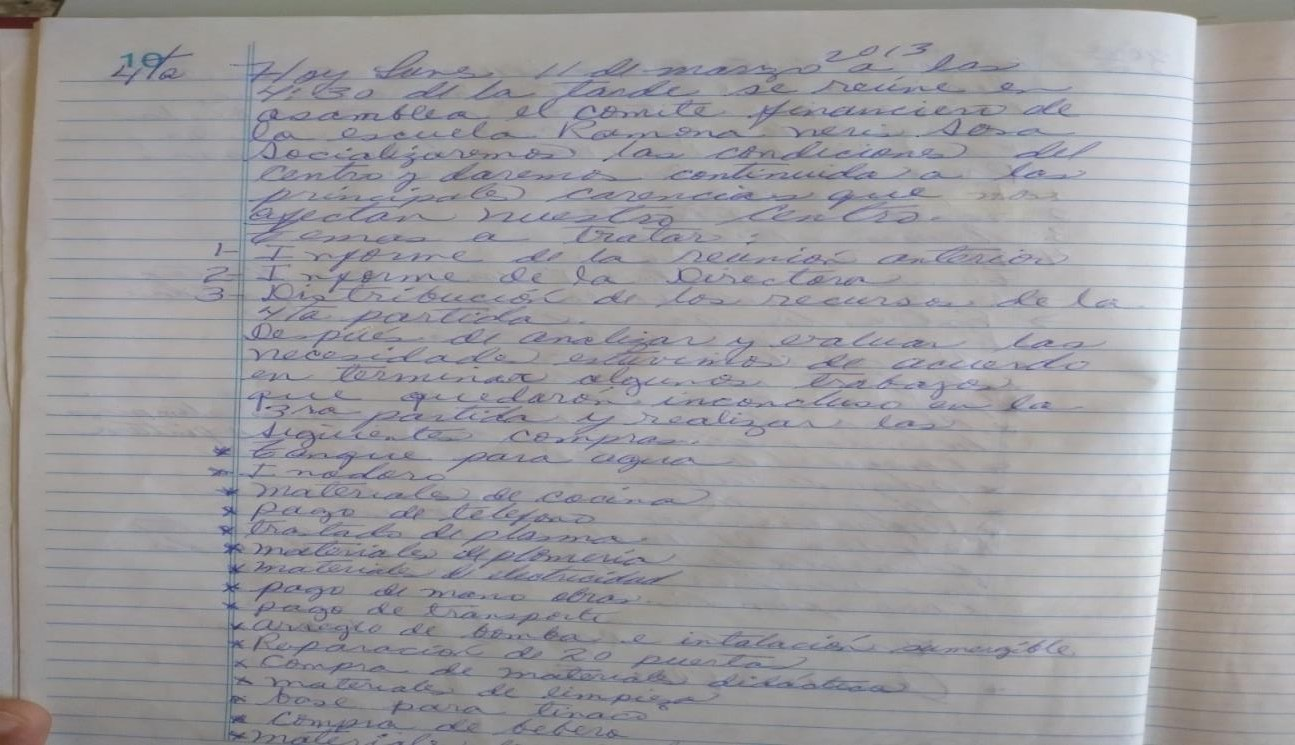 19
4/ta Hoy lunes 11 de marzo 2013 a las
4:30 de la tarde se reúne en
asamblea el comite financiero de
la escuela Ramona neris Sosa
Socializaremos las condiciones del
Centro y daremos continuida a las
principales carencias que nos
afectan nuestro Centro.
Temas a tratar:
1- Informe de la reunión anterior
2- Informe de la Directora
3- Distribución de los recursos de la
4/ta partida.
Después de analizar y evaluar las
necesidades estuvimos de acuerdo
en terminar algunos trabazos
que quedarón inconcluso en la
3ra partida y realizar las
siguientes compras.
* tanque para agua
* Inodoro
* materiales de cocina
* pago de telefono
* traslado de plasma.
* materiales de plomería
* materiales de electricidad
* pago de mano obras.
* pago de transporte
* arreglo de bomba e intalación sumergible
* Reparación de 20 puertas
* Compra de materiales didáctica
* materiales de limpieza
* base para tinaco
* Compra de bebero
* materiales